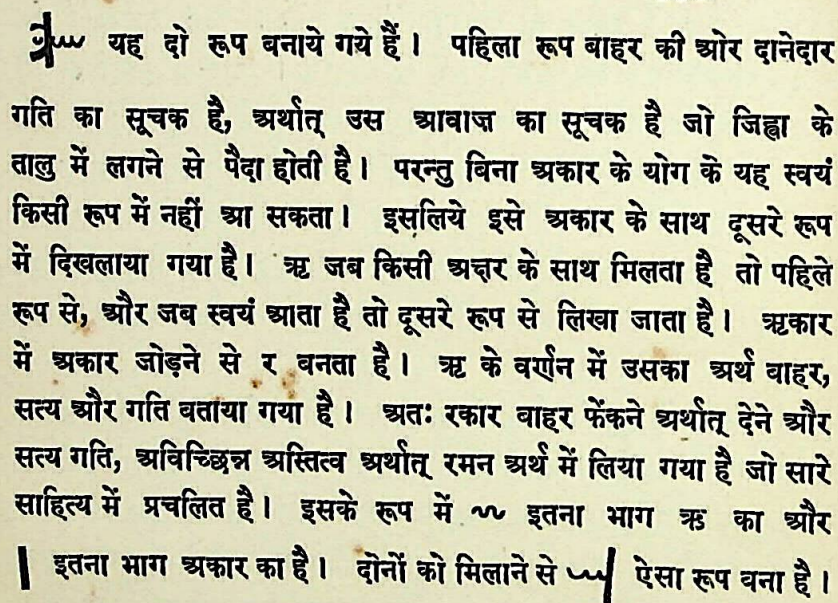 यह दो रूप बनाये गये हैं। पहिला रूप बाहर की ओर दानेदार
गति का सूचक है, अर्थात् उस आवाज़ का सूचक है जो जिह्वा के
तालु में लगने से पैदा होती है। परन्तु बिना अकार के योग के यह स्वयं
किसी रूप में नहीं आ सकता। इसलिये इसे अकार के साथ दूसरे रूप
में दिखलाया गया है। ऋ जब किसी अक्षर के साथ मिलता है तो पहिले
रूप से, और जब स्वयं आता है तो दूसरे रूप से लिखा जाता है। ऋकार
में अकार जोड़ने से र बनता है। ऋ के वर्णन में उसका अर्थ बाहर,
सत्य और गति बताया गया है। अतः रकार बाहर फेंकने अर्थात् देने और
सत्य गति, अविच्छिन्न अस्तित्व अर्थात् रमन अर्थ में लिया गया है जो सारे
साहित्य में प्रचलित है। इसके रूप में इतना भाग ऋ का और
इतना भाग अकार का है। दोनों को मिलाने से ऐसा रूप बना है।